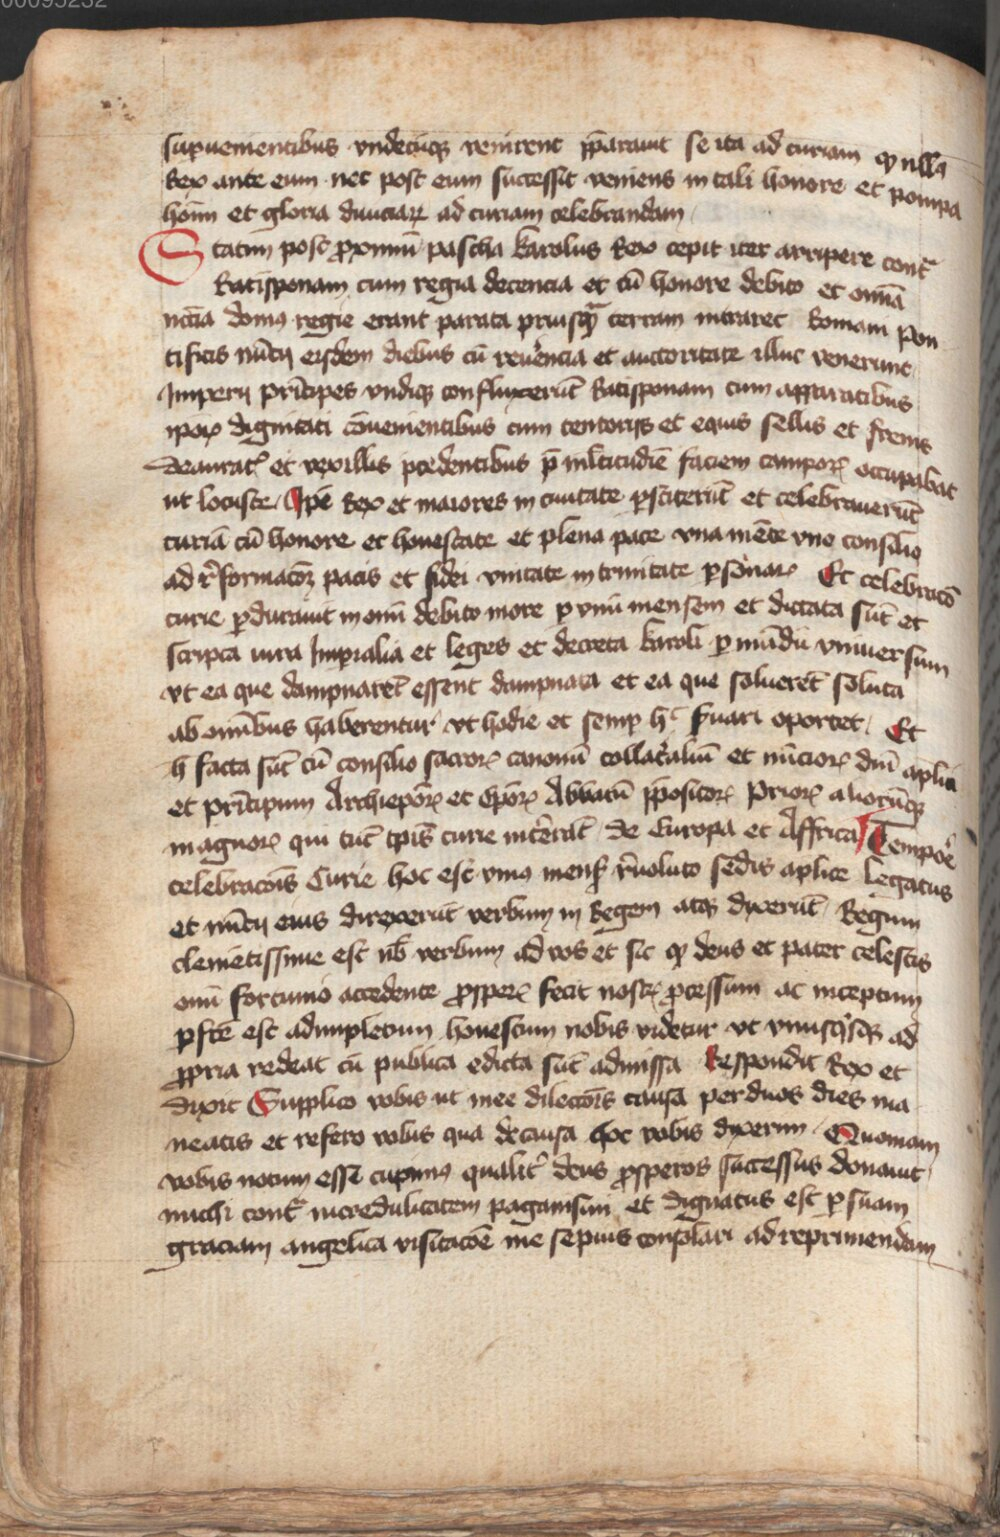 00095252
supuenientibus vndecūqȝ venirent p̄parauit se ita ad curiam qȝ nullꝰ
Rex ante eum nec post eum successit veniens in tali honore et pompa
hoīm et gloria diuiciaꝝ ad curiam celebrandam
Statim post ꝓximū pascha karolus Rex cepit iter arripere contᷓ
Ratisponam cum regia decencia et cū honore debito et omnia
domꝰ regie erant parata priusqᷓ terram intraret Romam pon
tificis nūcij eisdem diebus cū reuerencia et auctoritate illuc venerunt
Imperij prīcipes vndiqȝ confluxerūt Ratisponam cum apparatibus
ipoꝝ dignitati cōuenientibus cum tentorijs et equis sellis et frenis
deauratꝭ et vexillis p̄cedentibus p̄ mltitudīe faciem campoꝝ occupabāt
ut locuste Ipē Rex et maiores in ciuitate ꝑstiterūt et celebrauerūt
curiā cū honore et honestate et plena pace vna mēte vno consilio
ad r̄formacōȝ pacis et fidei vnitate in trinitate ꝑsonaꝝ Et celebracō
curie ꝑdurauit in om̄i debito more ꝑ vnū mensem et dictata sūt et
scripta iura Imꝑialia et leges et decreta karoli ꝑ mūdū vniuersum
vt ea que dampnaret essent dampnata et ea que solueret soluta
ab omībus haberentur vt hodie et semꝑ hᷤ ẜuari oportet Et
h̄ facta sūt cū consilio sacroꝝ canonū collatāliū et nūcioꝝ dnī aplici
et prīcipum Archiepōꝝ et Epōꝝ Abbatū p̄positoꝝ Prioꝝ aliorūqȝ
magnoꝝ qui tūc tꝑis curie int̄erāt de Europa et Affrica Tempoꝛe
celebracōis Curie hoc est vnꝰ mensꝭ r̄uoluto sedis aplice Legatus
et nūcij eius direxerūt verbum in Regem atqȝ dixerūt Regum
clemētissime est nb̄ verbum ad vos et sic qȝ deus et pater celestis
om̄i fortunio accedente ꝓspeꝝ fecit nosꝝ ꝓcessum ac inceptum
ꝑfcē est adimpletum honestum nobis videtur vt vnusqͥsqȝ ad
ꝓpria redeat cū publica edicta sūt admissa Respondit Rex et
dixit Supplico vobis ut mee dilectōis causa per duos dies ma
neatis et refero vobis qua de causa hoc vobis dixerim Quoniam
vobis notum esse cupimꝰ qualitꝰ deus ꝓsperos successus donauit
michi contᷓ incredulitatem paganisni et dignatus est ꝑ suam
graciam angelica visitacōe me sepius consolari ad reprimendam